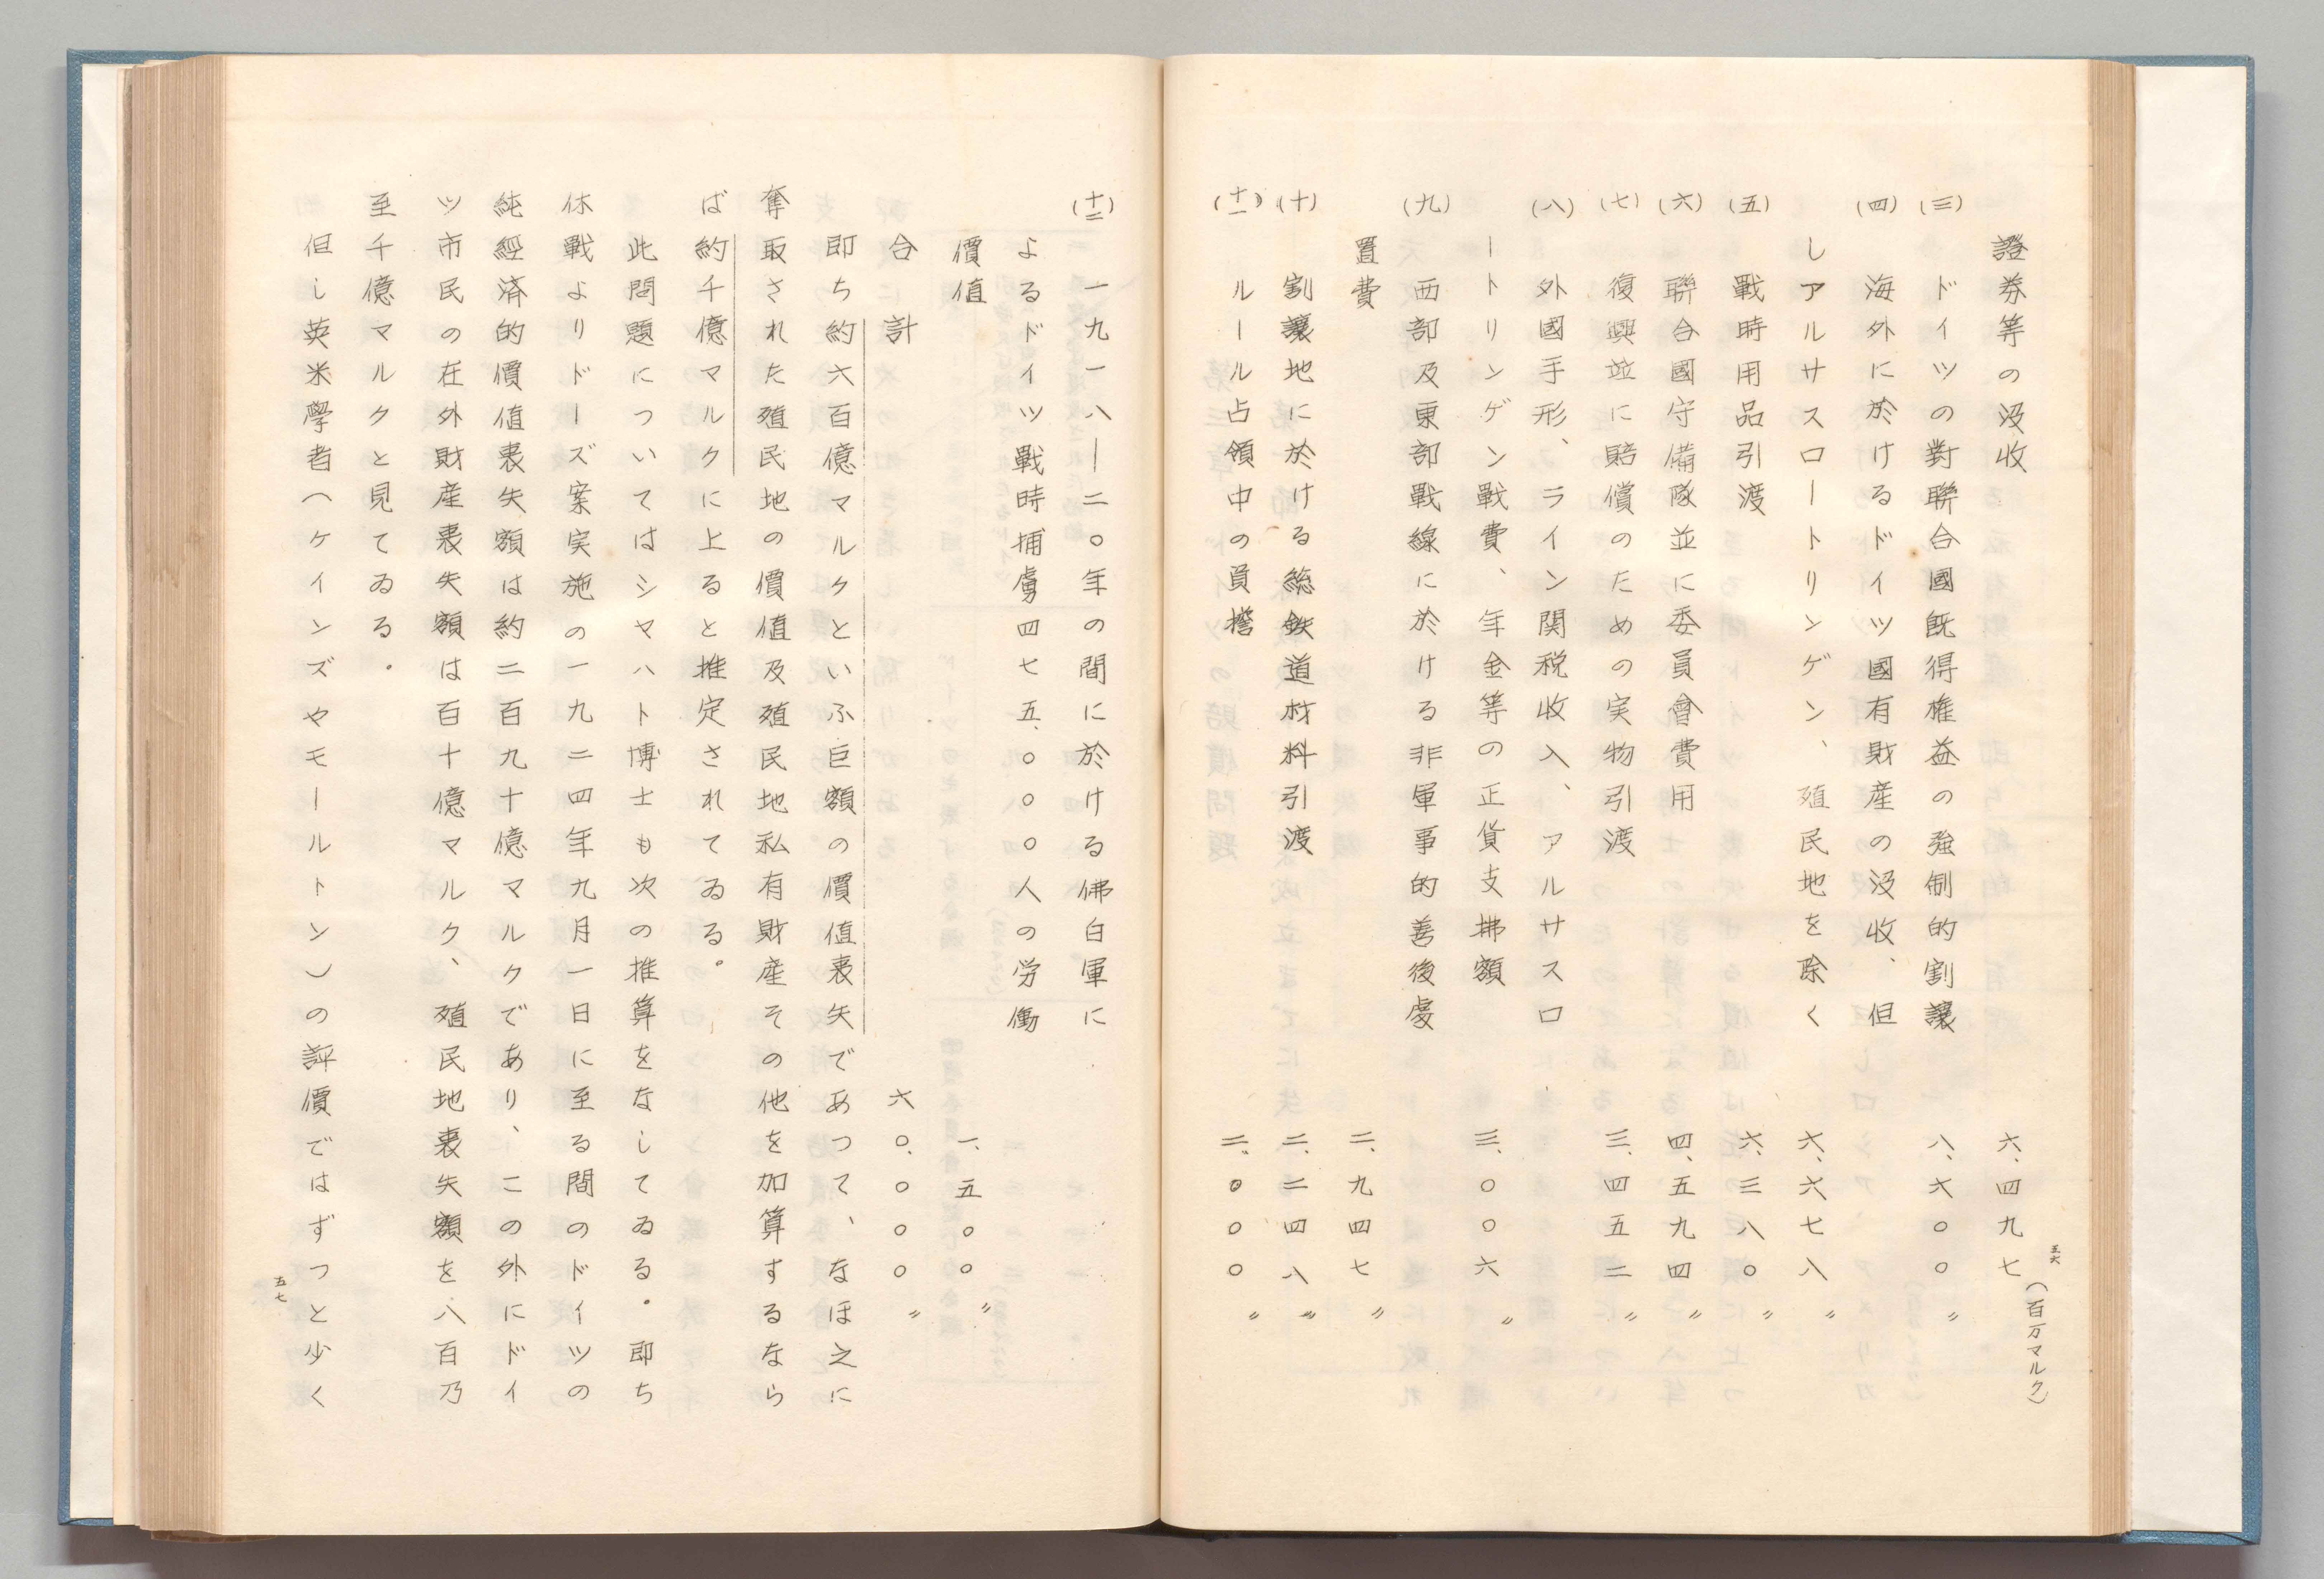 證券等の沒收　六、四九七（百万マルク）
(三)　ドイツの對聯合國既得権益の強制的割讓　八、六〇〇〃
(四)　海外に於けるドイツ國有財産の沒收、但
しアルサスロートリンゲン、殖民地を除く　六、六七八〃
(五)　戰時用品引渡　六、三八〇〃
(六)　聯合國守備隊並に委員會費用　四、五九四〃
(七)　復興並に賠償のための実物引渡　三、四五二〃
(八)　外國手形、ライン関税收入、アルサスロ
ートリンゲン戰費、年金等の正貨支拂額　三、〇〇六〃
(九)　西部及東部戰線に於ける非軍事的善後處
置費　二、九四七〃
(十)　割讓地に於ける総鉄道材料引渡　二、二四八〃
(十一)　ルール占領中の負擔　二、〇〇〇〃
五六
(十二)　一九一八—二〇年の間に於ける佛白軍に
よるドイツ戰時捕虜四七五、〇〇〇人の労働
價値　一、五〇〇〃
合計　六〇、〇〇〇〃
即ち約六百億マルクといふ巨額の價値喪失であつて、なほ之に
奪取された殖民地の價値及殖民地私有財産その他を加算するなら
ば約千億マルクに上ると推定されてゐる。
此問題についてはシヤハト博士も次の推算をなしてゐる。即ち
休戰よりドーズ案実施の一九二四年九月一日に至る間のドイツの
純經済的價値喪失額は約二百九十億マルクであり、この外にドイ
ツ市民の在外財産喪失額は百十億マルク、殖民地喪失額を八百乃
至千億マルクと見てゐる。
但し英米學者（ケインズやモールトン）の評價ではずつと少く
五七